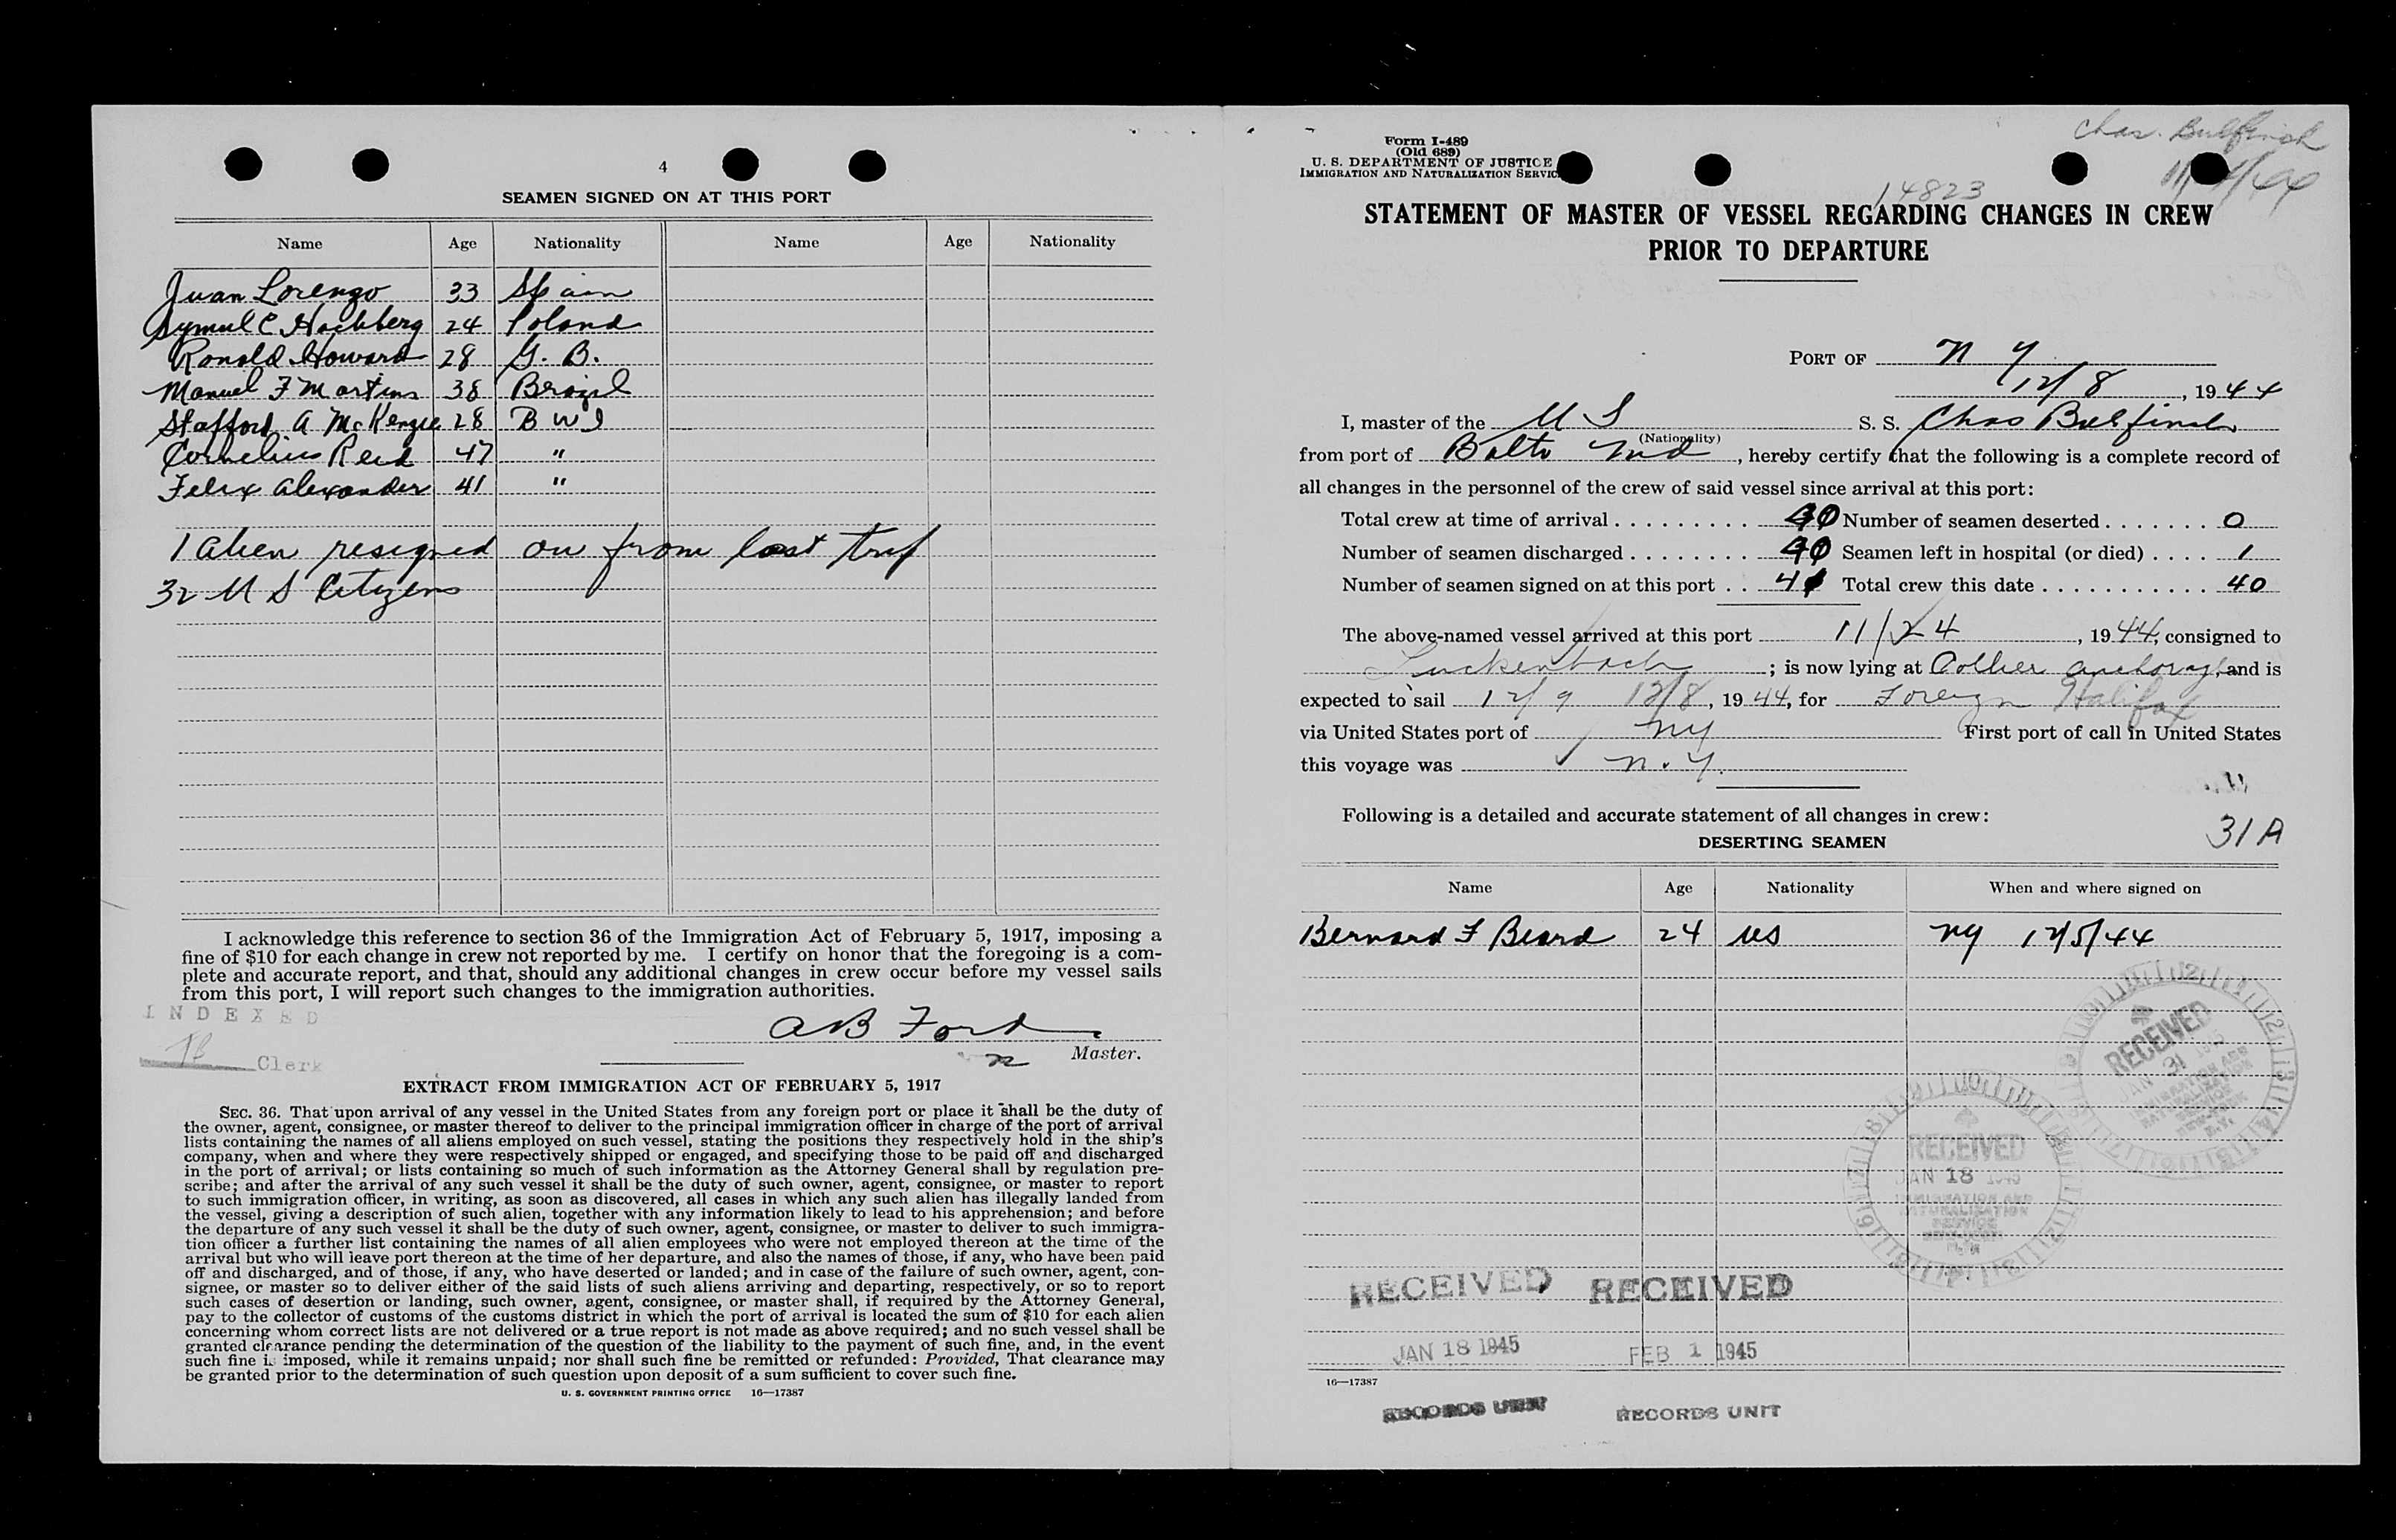 4
SEAMEN SIGNED ON AT THIS PORT
Name Age Nationality Name Age Nationality
Juan Lorenzo 33 Spain
Hochberg 24 Poland
Ronald Howard 28 G. B.
Manuel F Martins 38 Brazil
Stafford A McKenzie 28 B W I
Cornelius Reid 47 "
Felix Alexander 41 "
1 Alien resigned on from last trip
32 U S Citizens
I acknowledge this reference to section 36 of the Immigration Act of February 5, 1917, imposing a
fine of $10 for each change in crew not reported by me. I certify on honor that the foregoing is a com-
plete and accurate report, and that, should any additional changes in crew occur before my vessel sails
from this port, I will report such changes to the immigration authorities.
INDEXED
Clerk
A B Ford
Master.
EXTRACT FROM IMMIGRATION ACT OF FEBRUARY 5, 1917
SEC. 36. That upon arrival of any vessel in the United States from any foreign port or place it shall be the duty of
the owner, agent, consignee, or master thereof to deliver to the principal immigration officer in charge of the port of arrival
lists containing the names of all aliens employed on such vessel, stating the positions they respectively hold in the ship's
company, when and where they were respectively shipped or engaged, and specifying those to be paid off and discharged
in the port of arrival; or lists containing so much of such information as the Attorney General shall by regulation pre-
scribe; and after the arrival of any such vessel it shall be the duty of such owner, agent, consignee, or master to report
to such immigration officer, in writing, as soon as discovered, all cases in which any such alien has illegally landed from
the vessel, giving a description of such alien, together with any information likely to lead to his apprehension; and before
the departure of any such vessel it shall be the duty of such owner, agent, consignee, or master to deliver to such immigra-
tion officer a further list containing the names of all alien employees who were not employed thereon at the time of the
arrival but who will leave port thereon at the time of her departure, and also the names of those, if any, who have been paid
off and discharged, and of those, if any, who have deserted or landed; and in case of the failure of such owner, agent, con-
signee, or master so to deliver either of the said lists of such aliens arriving and departing, respectively, or so to report
such cases of desertion or landing, such owner, agent, consignee, or master shall, if required by the Attorney General,
pay to the collector of customs of the customs district in which the port of arrival is located the sum of $10 for each alien
concerning whom correct lists are not delivered or a true report is not made as above required; and no such vessel shall be
granted clearance pending the determination of the question of the liability to the payment of such fine, and, in the event
such fine is imposed, while it remains unpaid; nor shall such fine be remitted or refunded: Provided, That clearance may
be granted prior to the determination of such question upon deposit of a sum sufficient to cover such fine.
U. S. GOVERNMENT PRINTING OFFICE 16—17387
Chas. Bulfinch
Form I-489
(Old 689)
U. S. DEPARTMENT OF JUSTICE
IMMIGRATION AND NATURALIZATION SERVICE
14823
STATEMENT OF MASTER OF VESSEL REGARDING CHANGES IN CREW
PRIOR TO DEPARTURE
PORT OF N Y
12/8, 1944
I, master of the U S S. S. Chas Bulfinch
(Nationality)
from port of Balto Md, hereby certify that the following is a complete record of
all changes in the personnel of the crew of said vessel since arrival at this port:
Total crew at time of arrival 40 Number of seamen deserted 0
Number of seamen discharged 40 Seamen left in hospital (or died) 1
Number of seamen signed on at this port 41 Total crew this date 40
The above-named vessel arrived at this port 11/24, 1944, consigned to
Luckenbach; is now lying at Collier anchorage, and is
expected to sail 12/9 12/8, 1944, for Foreign Halifax
via United States port of NY First port of call in United States
this voyage was N.Y.
Following is a detailed and accurate statement of all changes in crew:
31 A
DESERTING SEAMEN
Name Age Nationality When and where signed on
Bernard F Beard 24 US NY 12/5/44
RECEIVED
JAN 31
RECEIVED
JAN 18 1945
IMMIGRATION AND
NATURALIZATION
SERVICE
RECEIVED RECEIVED
JAN 18 1945 FEB 1 1945
16—17387
RECORDS UNIT RECORDS UNIT